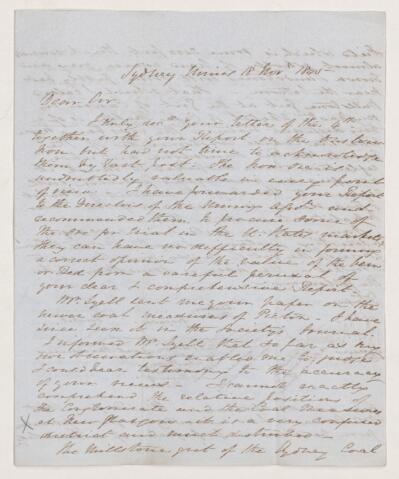 Sydney Mines 18 Nov. 1845
Dear Sir
I duly recd. your letter of the
together with your Report on the
Iron but had not time to acknowledge
them by last post. The Iron
undoubtedly valuable in every point
of view. I have forwarded your Report
to the Directors of the Mining Assn. and
recommended them to procure some of
the ore for trial in the U. States markets
they can have no difficulty in forming
a correct opinion of the value of the vein
or Bed from a careful perusal of
your clear & comprehensive Report.
Mr. Lyell sent me your paper on the
newer coal measures of Pictou. I have
since seen it in the Society's Journal.
I informed Mr Lyell that so far as my
own observations enabled me to judge
I could bear testimony to the accuracy
of your views. I cannot exactly
comprehend the relative positions of
the Conglomerate and the Coal Measures
at New Glasgow as it is a very confused
district and much disturbed.
The Millstone grit of the Sydney Coal